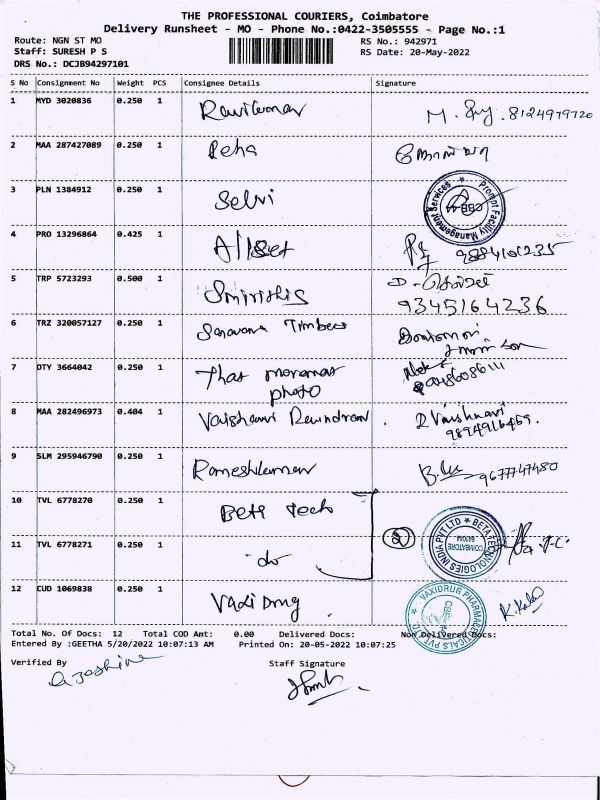 THE PROFESSIONAL COURIERS, Coimbatore
Delivery Runsheet - MO - Phone No.:0422-3505555 - Page No.:1
Route: NGN ST MO
RS No.: 942971
Staff: SURESH P S
RS Date: 20-May-2022
DRS No.: DCJB94297101
S No Consignment No Weight PCS Consignee Details Signature
1 MYD 3020836 0.250 1 Ravikumar M. 8124979720
2 MAA 287427089 0.250 1 Reha
3 PLN 1384912 0.250 1 Selvi
Prompt Facility Management Services
CBE-44
4 PRO 13296864 0.425 1 9884101235
5 TRP 5723293 0.500 1
9345164236
6 TRZ 320057127 0.250 1 Saravana Timbers
7 OTY 3664042 0.250 1
photo
8 MAA 282496973 0.404 1 Vaishnavi Ravindran R Vaishnavi
9894916469.
9 SLM 295946790 0.250 1 Rameshkumar 9677747480
10 TVL 6778270 0.250 1 Beta Tech
2
BETA TECHNOLOGIES INDIA PVT LTD
COIMBATORE
11 TVL 6778271 0.250 1 do
12 CUD 1069838 0.250 1 Vaxi Drug
VAXIDRUG PHARMACEUTICALS PVT LTD
Total No. Of Docs: 12 Total COD Amt: 0.00 Delivered Docs: Non Delivered Docs:
Entered By :GEETHA 5/20/2022 10:07:13 AM Printed On: 20-05-2022 10:07:25
Verified By Staff Signature